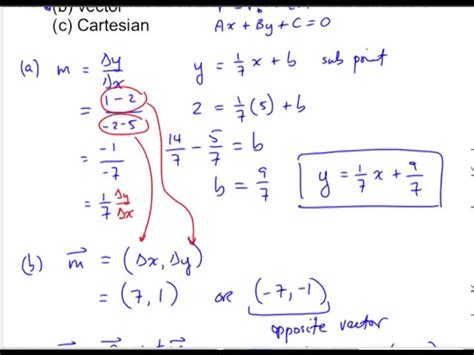 (b) vector
(c) Cartesian
Ax + By + C = 0
(a) m = Δy/Δx
= 1 - 2 / -2 - 5
= -1/-7
= 1/7 Δy/Δx
y = 1/7 x + b sub point
2 = 1/7 (5) + b
14/7 - 5/7 = b
b = 9/7
y = 1/7 x + 9/7
(b) m⃗ = (Δx, Δy)
= (7, 1) or (-7, -1)
opposite vector